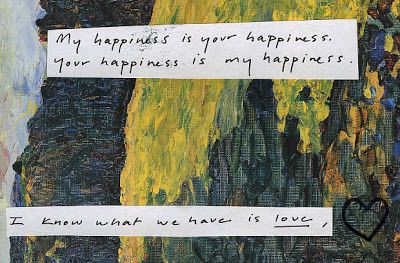 My happiness is your happiness.
Your happiness is my happiness.
I know what we have is love,